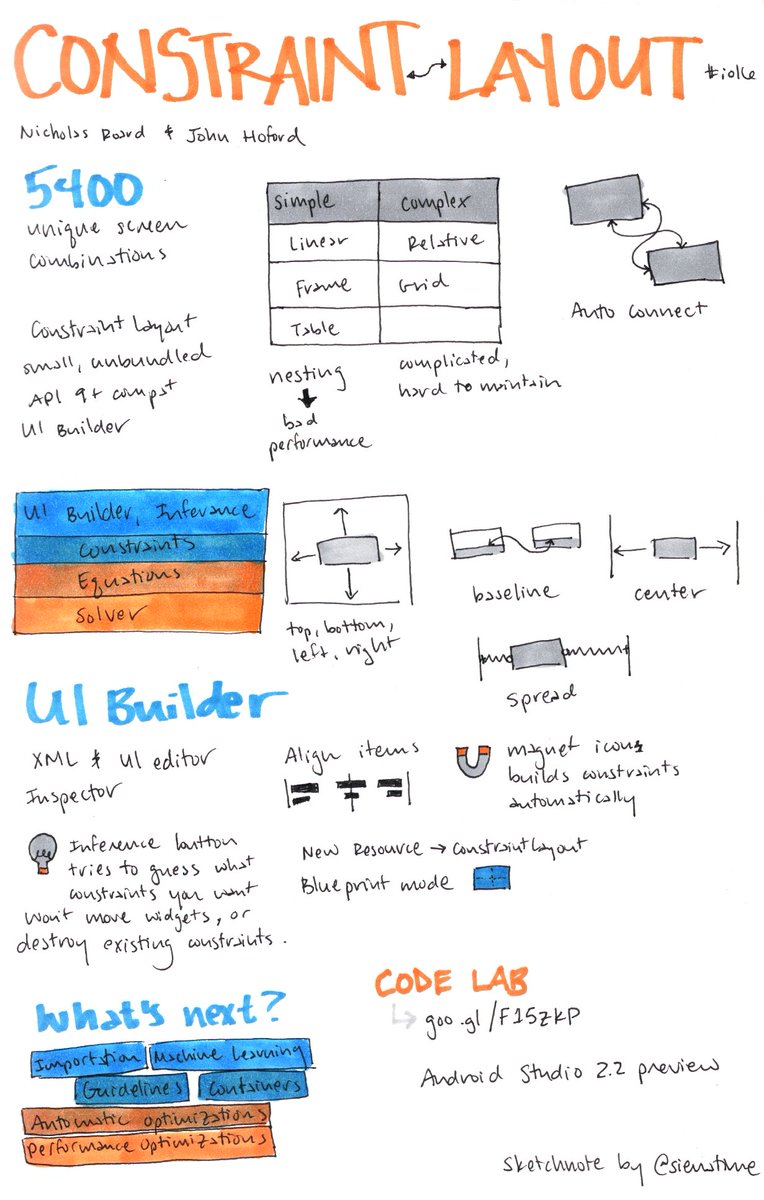 CONSTRAINT LAYOUT
#io16
Nicholas Roard & John Hoford
5400
unique screen
combinations
Constraint Layout
small, unbundled
API 9+ compat
UI Builder
Simple Complex
Linear Relative
Frame Grid
Table
nesting
bad
performance
complicated,
hard to maintain
Auto connect
UI Builder, Inference
Constraints
Equations
Solver
top, bottom,
left, right
baseline
center
spread
UI Builder
XML & UI editor
Inspector
Inference button
tries to guess what
constraints you want
won't move widgets, or
destroy existing constraints.
Align items
magnet icon
builds constraints
automatically
New Resource → ConstraintLayout
Blueprint mode
What's next?
Importation Machine Learning
Guidelines Containers
Automatic optimizations
Performance Optimizations
CODE LAB
goo.gl/F15ZKP
Android Studio 2.2 preview
sketchnote by